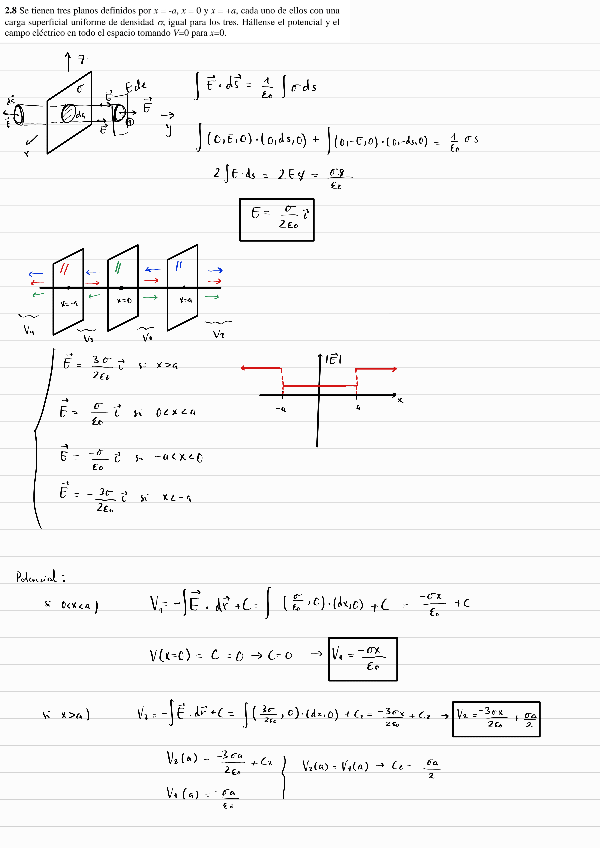 2.8 Se tienen tres planos definidos por x = -a, x = 0 y x = +a, cada uno de ellos con una
carga superficial uniforme de densidad σ, igual para los tres. Hállense el potencial y el
campo eléctrico en todo el espacio tomando V=0 para x=0.
z σ E ds
ds E E ds E
E y
x
∫ E⃗ · ds⃗ = 1/ε₀ ∫ σ ds
∫ (0,E,0)·(0,ds,0) + ∫ (0,-E,0)·(0,-ds,0) = 1/ε₀ σs
2∫E·ds = 2E s = σs/ε₀
E = σ/2ε₀ i⃗
x=-a x=0 x=a
V₄ V₃ V₁ V₂
E⃗ = 3σ/2ε₀ i⃗ si x>a
E⃗ = σ/2ε₀ i⃗ si 0<x<a
E⃗ = -σ/2ε₀ i⃗ si -a<x<0
E⃗ = -3σ/2ε₀ i⃗ si x<-a
|E⃗|
-a a x
Potencial:
si 0<x<a) V₁=-∫E⃗ · dr⃗ +C = ∫ (σ/ε₀,0)·(dx,0) + C = -σx/ε₀ + C
V(x=0) = C = 0 → C=0 → V₁ = -σx/ε₀
si x>a) V₂ = -∫E⃗·dr⃗ +C = ∫(3σ/2ε₀, 0)·(dx,0) + C₂ = -3σx/2ε₀ + C₂ → V₂ = -3σx/2ε₀ + σa/2
V₂(a) = -3σa/2ε₀ + C₂
V₂(a) = V₁(a) → C₂ = σa/2
V₁(a) = -σa/ε₀